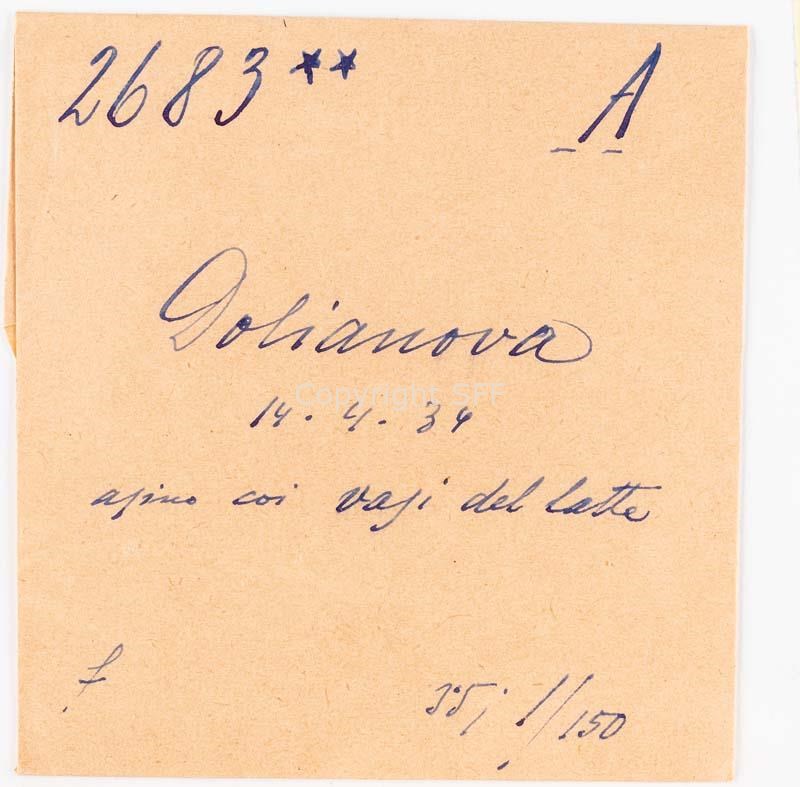 2683** A
Dolianova
Copyright SFF
14.4.34
asino coi vasi del latte
f